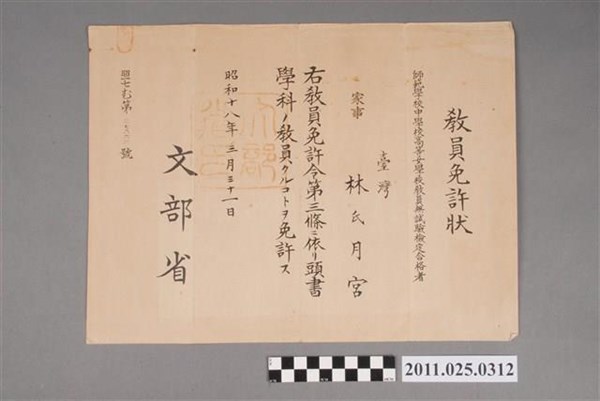 教員免許狀
師範學校中學校高等女學校教員無試驗檢定合格者
家事
臺灣
林氏月宮
右教員免許令第三條ニ依リ頭書
學科ノ教員タルコトヲ免許ス
昭和十八年三月三十一日
文部省
第
號
2011.025.0312